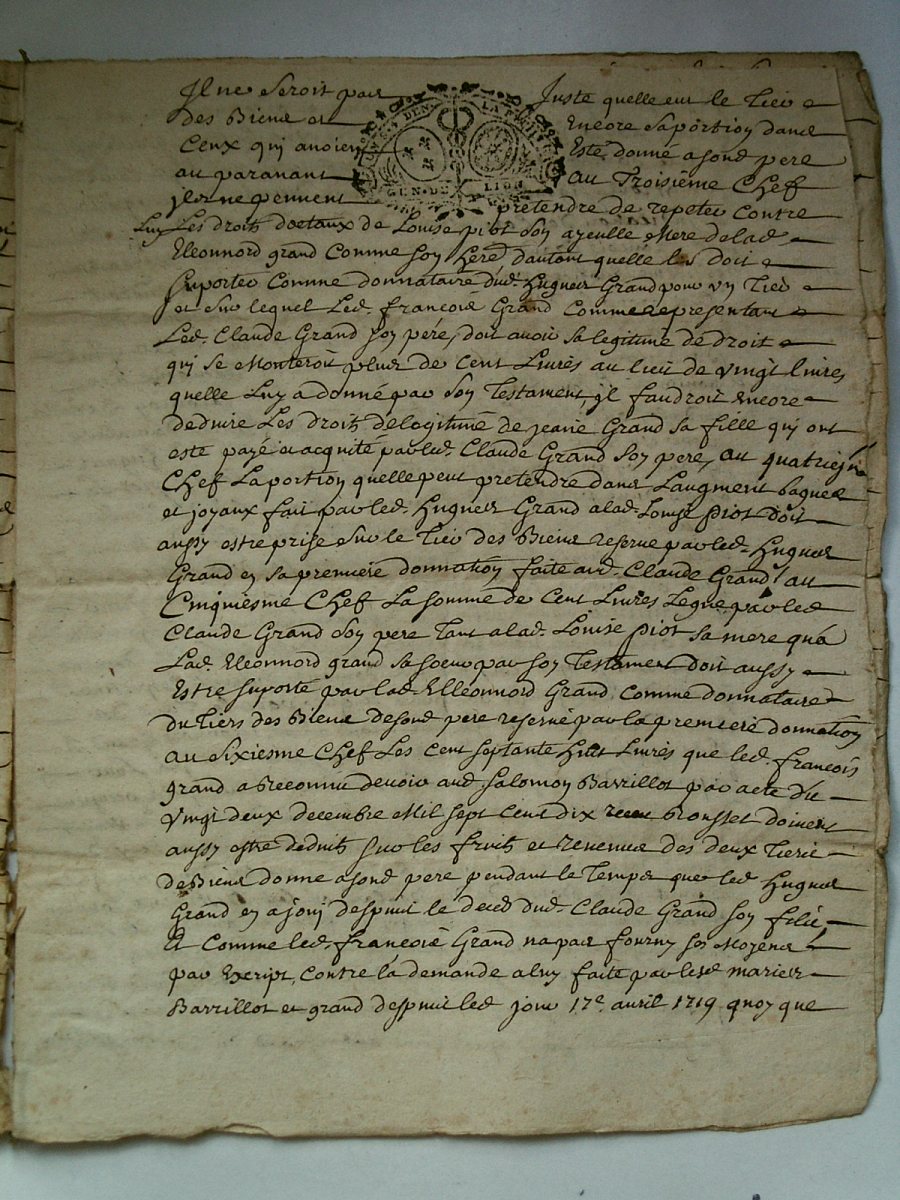 Il ne seroit pas Juste quelle eut le Tier
des Biens et Encore sa portion dans
Ceux qui avoient Esté donné a sond pere
au paravant au Troisième Chef
ils ne peuvent pretendre de repeter contre
Luy Les droits dottaux de Louise piot son ayeulle Mere de lad.
Eleonnord grand Comme son Here d'autant quelle les doit
suporter Comme donnataire dud. Hugues Grand pour un Tier
et sur lequel Led. françois Grand Comme representant
Led. Claude Grand son pere, doit avoir sa legitime de droit
qui se Monteroit plus de Cent Livres au lieu de vingt livres
quelle Luy a donné par son Testament, il faudroit encore
deduire Les droits de legitime de jeane Grand sa fille qui ont
esté payé et acquité par led. Claude Grand son pere, au quatriem
Chef La portion quelle peut pretendre dans Laugment bagues
et joyaux fait par led. Hugues Grand a lad. Louise piot doit
aussy estre prise sur le Tier des Biens reserve par led. Hugues
Grand en sa premiere donnation faite aud. Claude Grand, au
Cinquiesme Chef La somme de Cent Livres Legué par led
Claude Grand son pere Tant a lad. Louise piot sa mere qu'a
Lad. Eleonnord grand sa soeur par son Testament doit aussy
Estre suporté par lad. Elleonnord Grand comme donnataire
du tiers des Biens de sond pere reservé par la premiere donnation
au Sixiesme Chef Les cent septante Huit Livres que led. françois
grand a Reconnu devoir aud Salomon Barrillot par acte du
vingt deux decembre Mil sept Cent dix Rousset doivent
aussy estre deduits sur les fruits et revenus des deux Tiers
de Biens donne a sond pere pendant le Temps que led Hugues
Grand en a joui despuit le deced dud. Claude Grand son fils
Et Comme led. françois Grand na pas fourny ses Moyens
par Escript, Contre la demande a luy faite par lesd mariez
Barrillot et grand despuit led jour 17e. avril 1719 quoy que